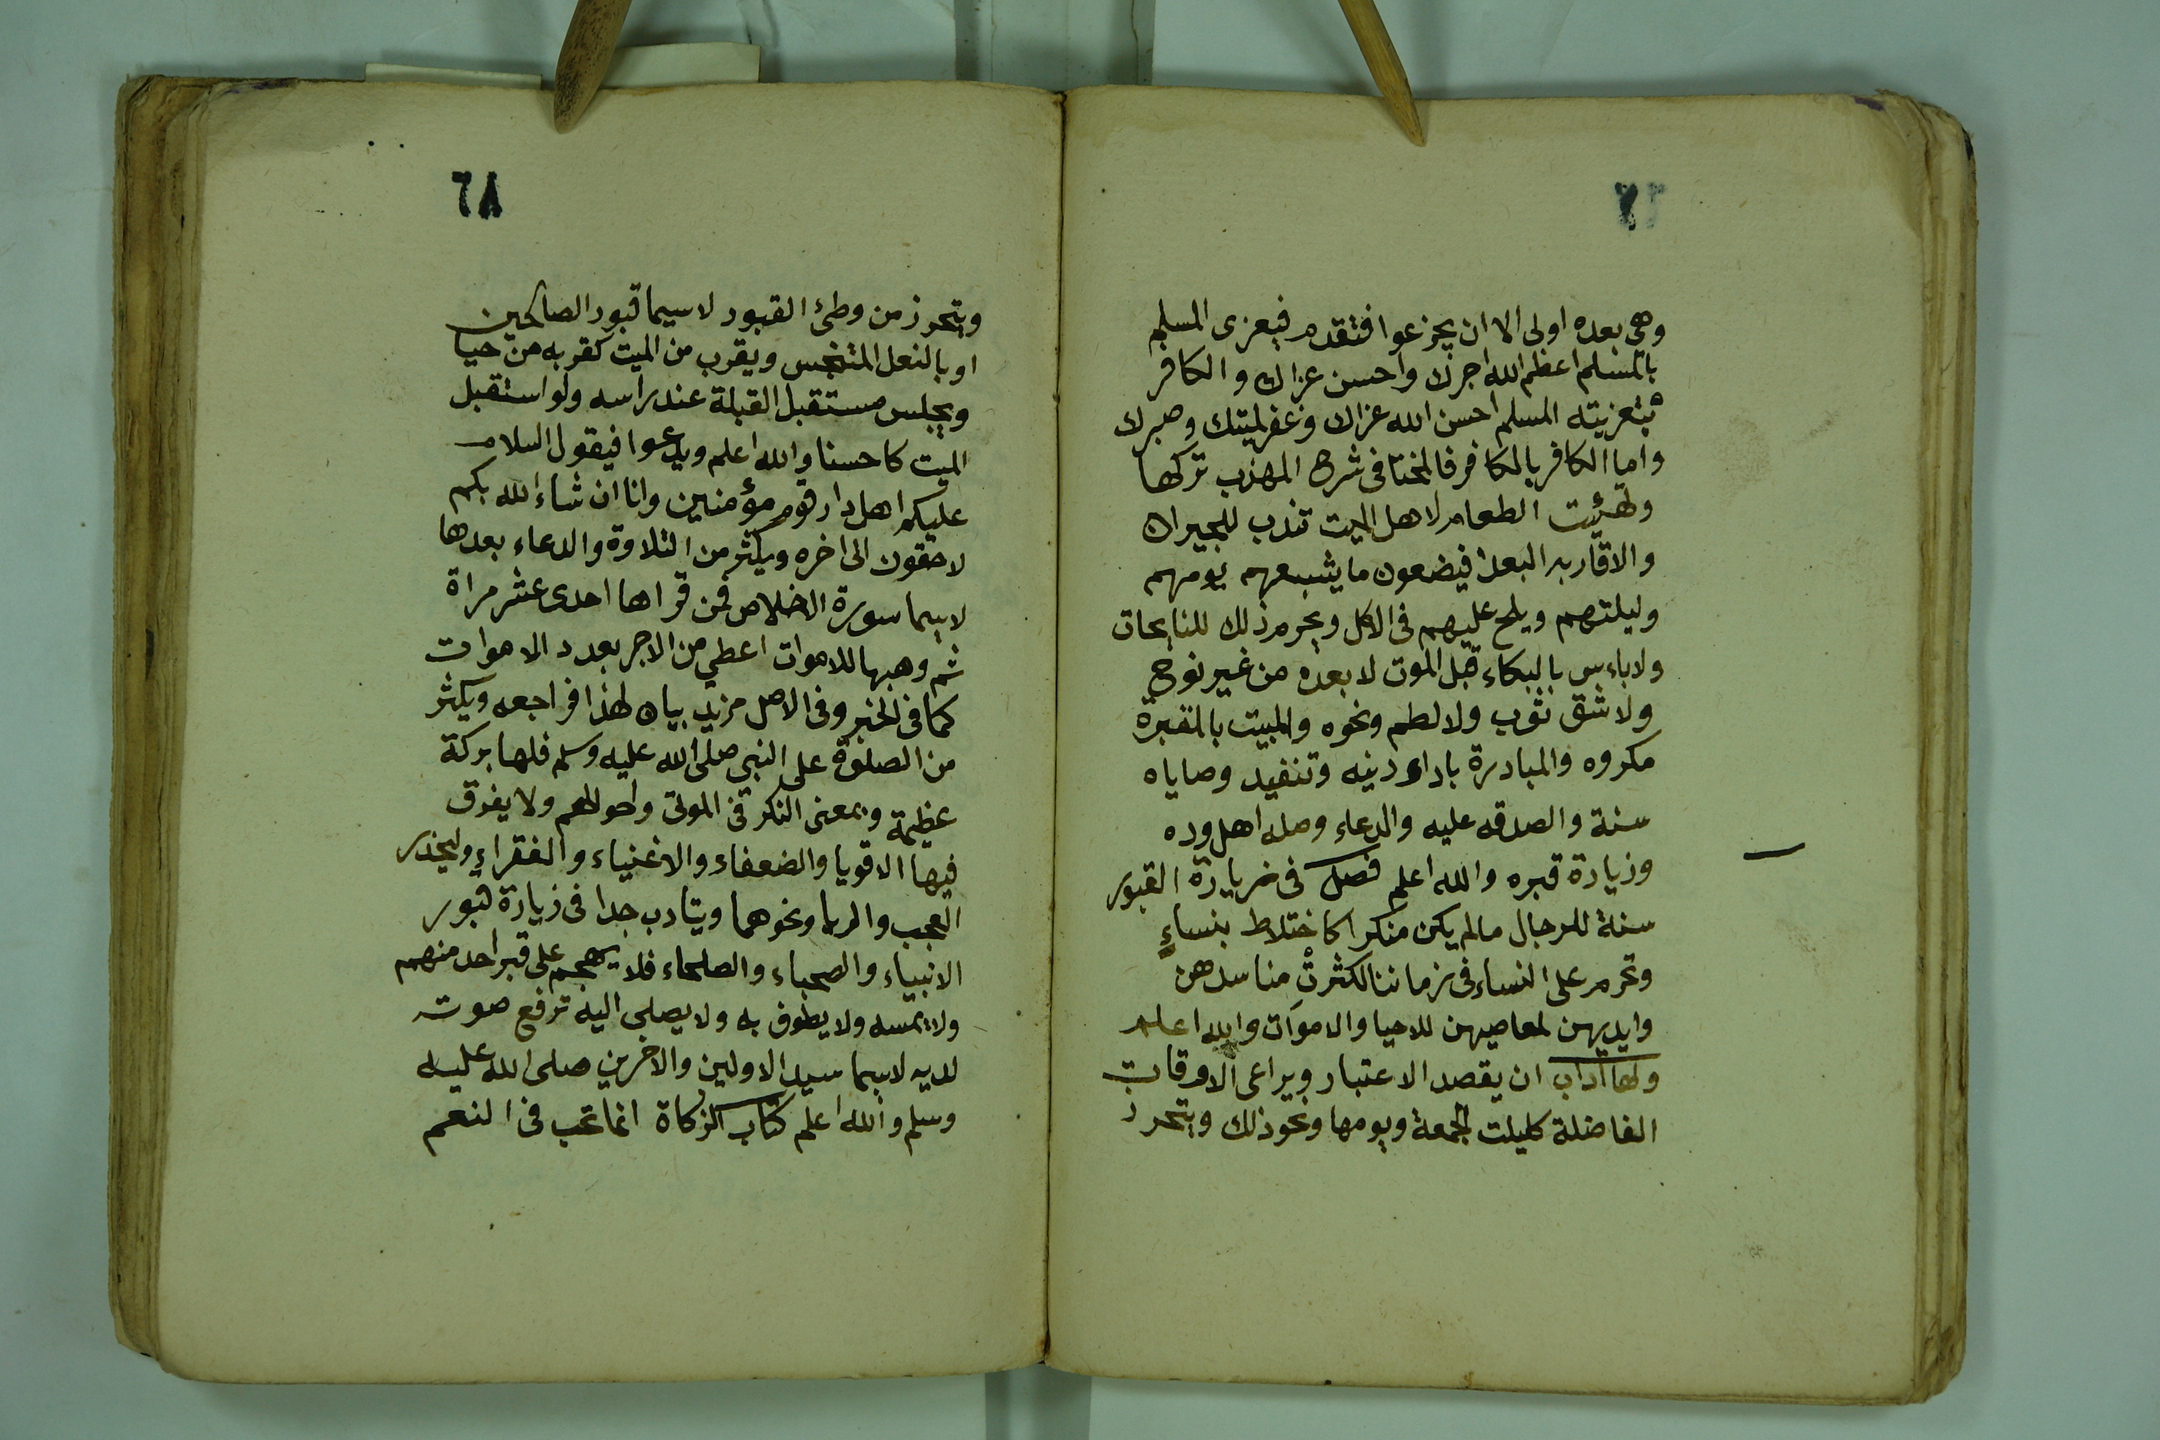 ٦٧
وهي بعده اولى الا ان يجزعوا فتقدم فيعزى المسلم
بالمسلم اعظم الله اجرك واحسن عزاك والكافر
بتعزيته المسلم احسن الله عزاك وغفر لميتك وصبرك
واما الكافر بالكافر فالمختا في شرح المهذب تركها
وتهئيت الطعام لاهل الميت تندب للجيران
والاقاربه البعدا فيضعون ما يشبعهم يومهم
وليلتهم ويلح عليهم في الاكل ويحرم ذلك للنايحات
ولاباءس بالبكاء قبل الموت لا بعده من غير نوح
ولا شق ثوب ولا لطم ونحوه والمبيت بالمقبرة
مكروه والمبادرة باداء دينه وتنفيد وصاياه
سنة والصدقه عليه والدعاء وصله اهل وده
وزيادة قبره والله اعلم فصل في زيارة القبور
سنة للرجال مالم يكن منكرا كاختلاط بنساء
وتحرم على النساء في زماننا لكثرت مفاسدهن
وايديهن لمعاصيهن للاحيا والاموات والله اعلم
ولها آداب ان يقصد الاعتبار ويراعى الاوقات
الفاضلة كليلت الجمعة ويومها ونحو ذلك ويتحرز
٦٨
ويتحرز من وطئ القبور لا سيما قبور الصالحين
او بالنعل المتنجس ويقرب من الميت كقربه من حيا
ويجلس مستقبل القبلة عند راسه ولو استقبل
الميت كا حسنا والله اعلم ويدعوا فيقول السلام
عليكم اهل دار قوم مؤمنين وانا ان شاء الله بكم
لاحقون الى اخره ويكثر من التلاوة والدعاء بعدها
لاسيما سورة الاخلاص فمن قراها احدى عشر مراة
ثم وهبها للاموات اعطي من الاجر بعدد الاموات
كما في الخبر وفي الاصل مزيد بيان لهذا فراجعه ويكثر
من الصلوة على النبي صلى الله عليه وسلم فلها بركة
عظيمة ويمعنى الفكر في الموتى واحوالهم ولا يفرق
فيها الاقويا والضعفاء والاغنياء والفقراء وليحذر
العجب والريا ونحوهما ويتادب جدا في زيارة قبور
الانبياء والصحباء والصلحاء فلا يهجم على قبر احد منهم
ولا يمسه ولا يطوف به ولا يصلى اليه ترفع صوت
لديه لاسيما سيد الاولين والاخرين صلى الله عليه
وسلم والله اعلم كتاب الزكاة انما تجب في النعم